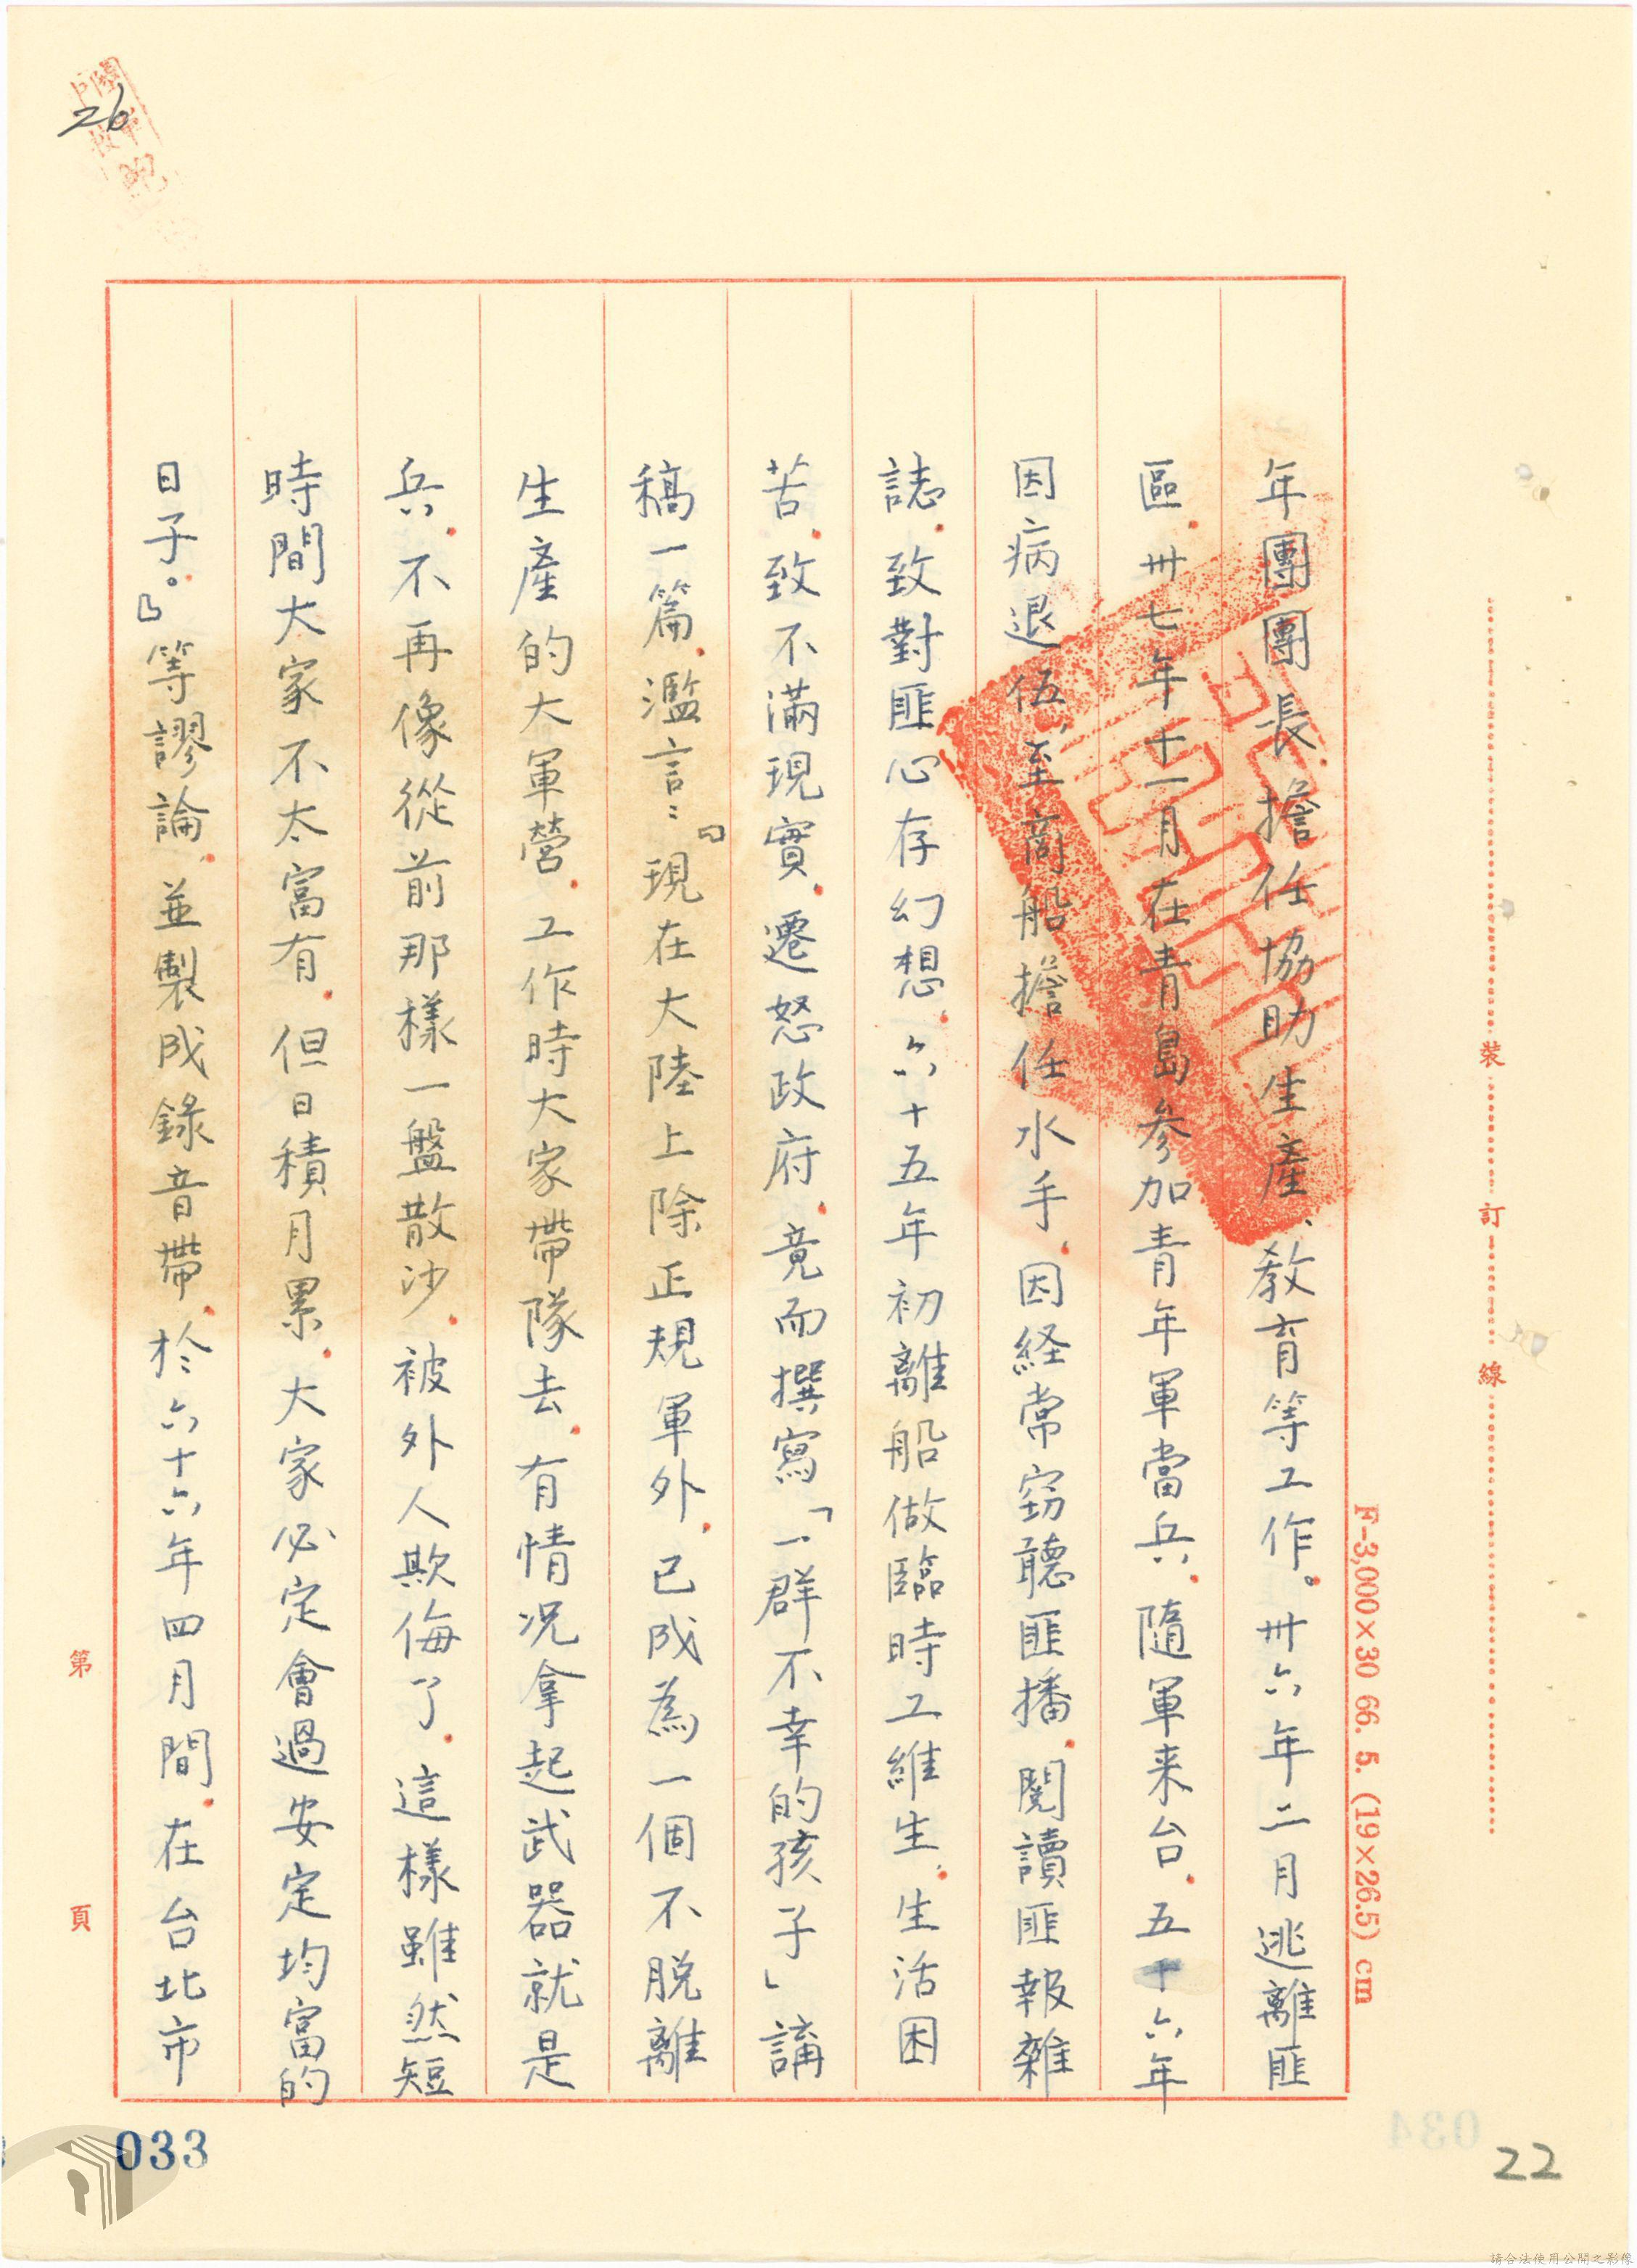 26
年團團長擔任協助生產、教育等工作。卅六年二月逃離匪
區，卅七年十一月在青島參加青年軍當兵，隨軍来台，五十六年
因病退伍，至商船擔任水手，因経常窃聽匪播，閱讀匪報雜
誌，致對匪心存幻想，六十五年初離船做臨時工維生，生活困
苦，致不滿現實，遷怒政府，竟而撰寫「一群不幸的孩子」講
稿一篇，濫言：『現在大陸上除正規軍外，已成為一個不脫離
生產的大軍營，工作時大家帶隊去，有情况拿起武器就是
兵，不再像從前那樣一盤散沙，被外人欺侮了，這樣雖然短
時間大家不太富有，但日積月累，大家必定會過安定均富的
日子。』等謬論，並製成錄音帶，於六十六年四月間，在台北市
裝 訂 線
F-3,000×30 66. 5. (19×26.5) cm
第 頁
033
034
22
請合法使用公開之影像